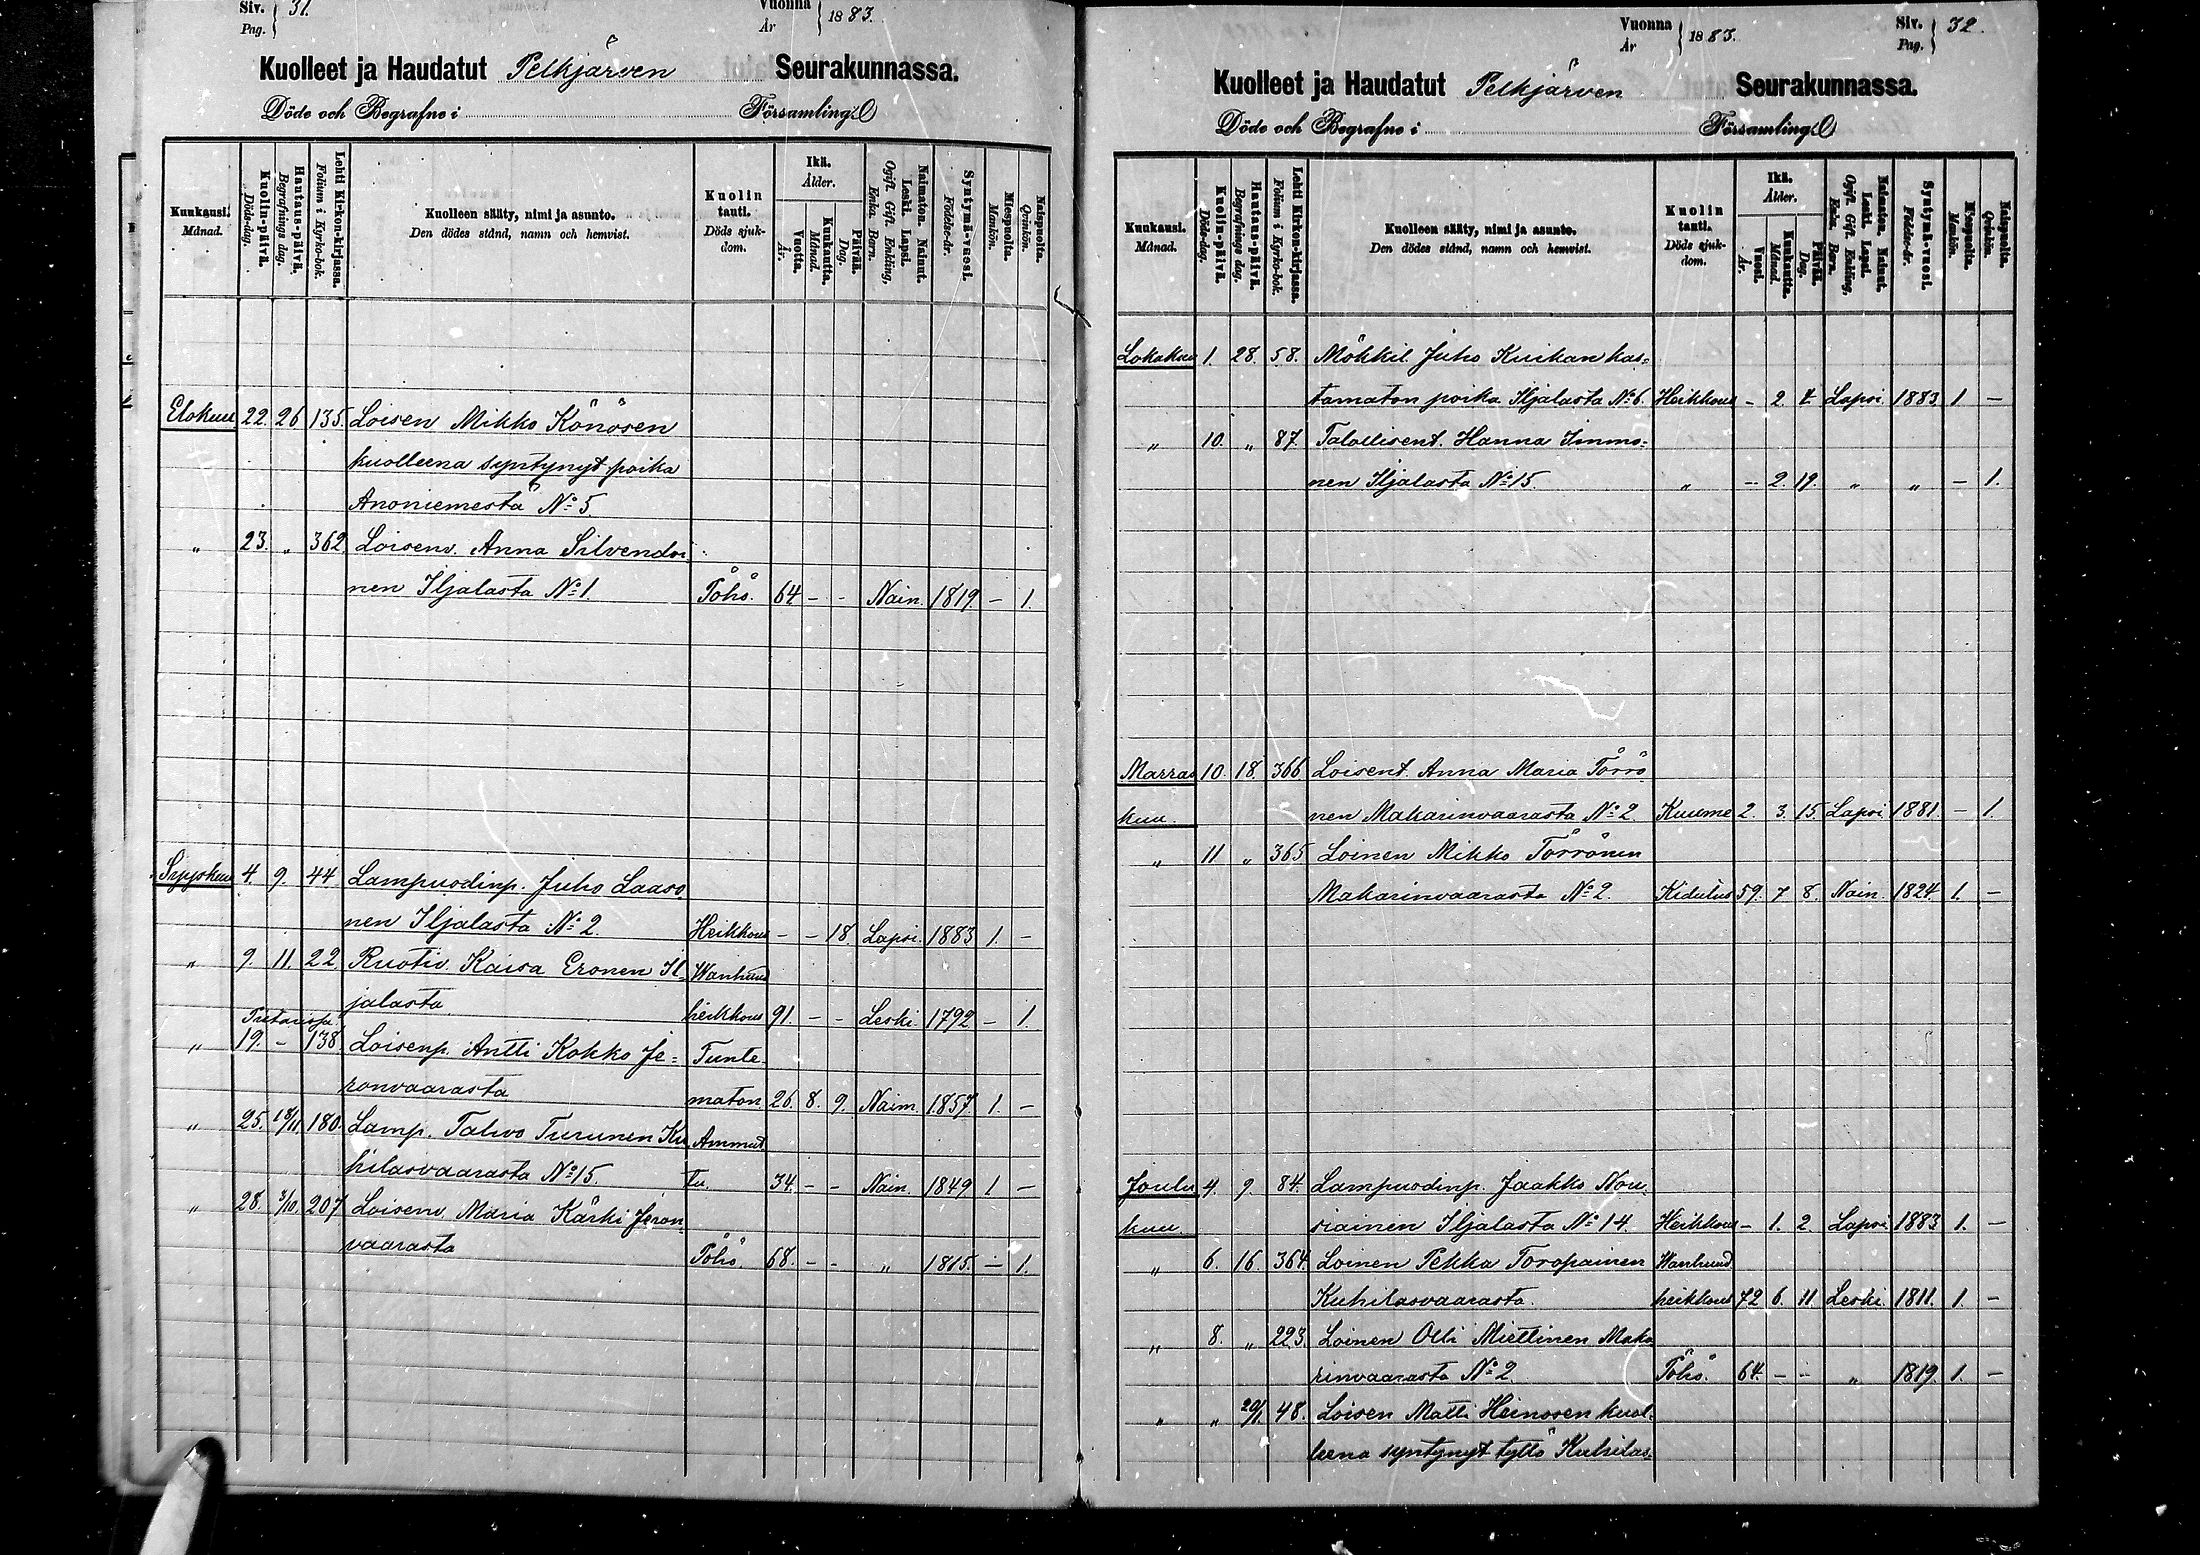 Siv. Pag. 31.
Vuonna År 1883.
Kuolleet ja Haudatut Pelkjärven Seurakunnassa.
Döde och Begrafne i Församling.
Kuukausi. Månad.
Kuolin-päivä. Döds-dag.
Hautaus-päivä. Begrafnings dag.
Lehti Kirkon-kirjassa. Folium i Kyrko-bok.
Kuolleen sääty, nimi ja asunto. Den dödes stånd, namn och hemvist.
Kuolin tauti. Döds sjuk-dom.
Ikä. Ålder.
Vuotta. År.
Kuukautta. Månad.
Päivää. Dag.
Naimaton. Nainut. Leski. Lapsi. Ogift. Gift. Enkling, Enka. Barn.
Syntymä-vuosi. Födelse-år.
Miespuolta. Mankön.
Naispuolta. Qvinkön.
Elokuu 22. 26 135. Loisen Mikko Könösen
kuolleena syntynyt poika
Anoniemestä No 5
" 23. " 362 Loisenv. Anna Silvendoi
nen Iljalasta No 1. Töhö. 64 - - Nain. 1819. - 1.
Syyskuu 4 9. 44 Lampuodinp. Juho Laaso
nen Iljalasta No 2. Heikkous - - 18 Lapsi. 1883 1. -
" 9. 11. 22 Ruotiv. Kaisa Eronen Il- Wanhuud
jalasta heikkous 91. - - Leski. 1792 - 1.
" 19. - 138. Loisenp. Antti Kokko Je= Tunte-
ronvaarasta maton 26. 8. 9. Naim. 1857 1. -
" 25. 18/11. 180. Lamp. Tahvo Turunen Ku Ammut
hilasvaarasta No 15. tu. 34. - - Nain. 1849 1 -
" 28. 3/10. 207 Loisenv. Maria Kärki Jeron
vaarasta Töhö. 68. - - " 1815. - 1.
Vuonna År 1883.
Siv. Pag. 32.
Kuolleet ja Haudatut Pelkjärven Seurakunnassa.
Döde och Begrafne i Församling.
Kuukausi. Månad.
Kuolin-päivä. Döds-dag.
Hautaus-päivä. Begrafnings dag.
Lehti Kirkon-kirjassa. Folium i Kyrko-bok.
Kuolleen sääty, nimi ja asunto. Den dödes stånd, namn och hemvist.
Kuolin tauti. Döds sjuk-dom.
Ikä. Ålder.
Vuosi. År.
Kuukautta. Månad.
Päivää. Dag.
Naimaton. Nainut. Leski. Lapsi. Ogift. Gift. Enkling, Enka. Barn.
Syntymä-vuosi. Födelse-år.
Miespuolta. Mankön.
Naispuolta. Qvinkön.
Lokakuu 1. 28. 58. Mökkil. Juho Kuikan kas=
tamaton poika Iljalasta No 6. Heikkous - 2. Lapsi 1883 1. -
" 10. " 87. Talollisent. Hanna Immo=
nen Iljalasta No 15. " - 2. 19. " " - 1.
Marras 10. 18. 366 Loisent. Anna Maria Törrö
kuu. nen Makarinvaarasta No 2 Kuume 2. 3. 15. Lapsi 1881. - 1.
" 11 " 365 Loinen Mikko Törrönen
Makarinvaarasta No 2. Kidutus 59. 7 8. Nain. 1824. 1. -
Joulu 4. 9. 84. Lampuodinp. Jaakko Nou
kuu. siainen Iljalasta No 14. Heikkous - 1. 2. Lapsi. 1883 1. -
" 6. 16. 364. Loinen Pekka Toropainen Wanhuud
Kuhilasvaarasta. heikkous 72 6. 11 Leski. 1811. 1. -
" 8. " 223. Loinen Olli Miettinen Maka
rinvaarasta No 2. Töhö. 64. - - " 1819 1. -
" " 48. Loisen Matti Heinosen kuol-
leena syntynyt tyttö Kuhilas-